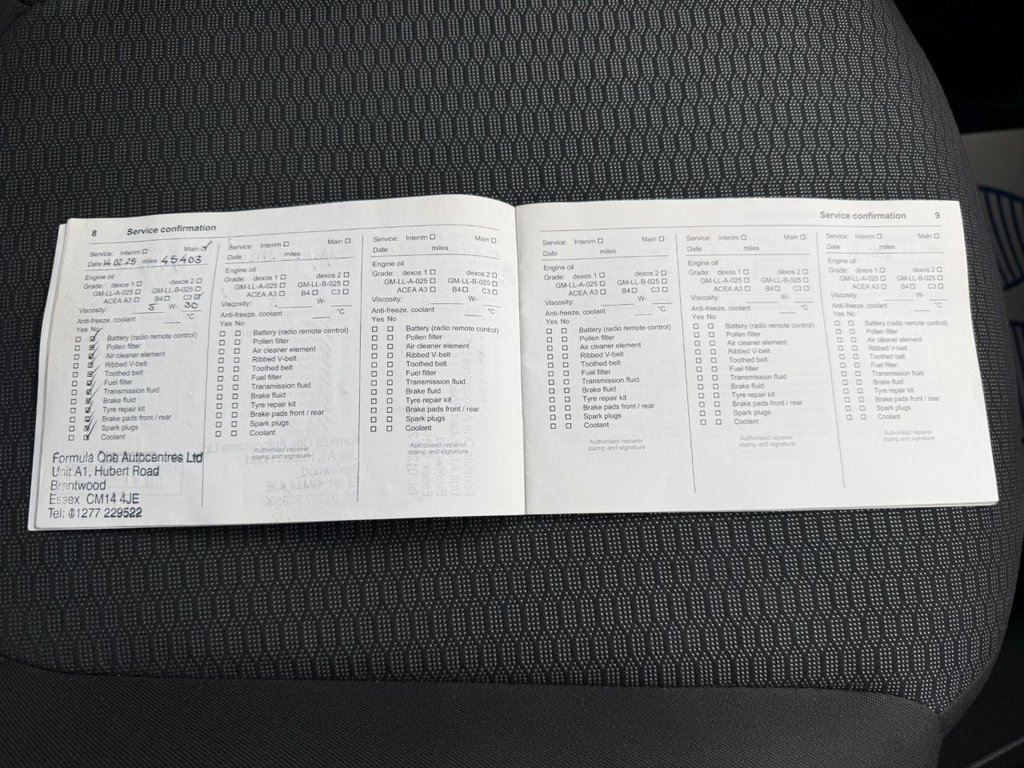 8 Service confirmation
Service: Interim ☐ Main ☑
Date 14.02.25 miles 45403
Engine oil
Grade: dexos 1 ☐ dexos 2 ☐
GM-LL-A-025 ☐ GM-LL-B-025 ☐
ACEA A3 ☐ B4 ☐ C3 ☑
Viscosity: 5 W- 30
Anti-freeze, coolant °C
Yes No
☐ ☑ Battery (radio remote control)
☐ ☑ Pollen filter
☐ ☑ Air cleaner element
☐ ☑ Ribbed V-belt
☐ ☑ Toothed belt
☐ ☑ Fuel filter
☐ ☑ Transmission fluid
☐ ☑ Brake fluid
☐ ☑ Tyre repair kit
☐ ☑ Brake pads front / rear
☐ ☑ Spark plugs
☐ ☑ Coolant
Formula One Autocentres Ltd
Unit A1, Hubert Road
Brentwood
Essex CM14 4JE
Tel: 01277 229522
Service: Interim ☐ Main ☐
Date miles
Engine oil
Grade: dexos 1 ☐ dexos 2 ☐
GM-LL-A-025 ☐ GM-LL-B-025 ☐
ACEA A3 ☐ B4 ☐ C3 ☐
Viscosity: W-
Anti-freeze, coolant °C
Yes No
☐ ☐ Battery (radio remote control)
☐ ☐ Pollen filter
☐ ☐ Air cleaner element
☐ ☐ Ribbed V-belt
☐ ☐ Toothed belt
☐ ☐ Fuel filter
☐ ☐ Transmission fluid
☐ ☐ Brake fluid
☐ ☐ Tyre repair kit
☐ ☐ Brake pads front / rear
☐ ☐ Spark plugs
☐ ☐ Coolant
Authorised repairer
stamp and signature
Service: Interim ☐ Main ☐
Date miles
Engine oil
Grade: dexos 1 ☐ dexos 2 ☐
GM-LL-A-025 ☐ GM-LL-B-025 ☐
ACEA A3 ☐ B4 ☐ C3 ☐
Viscosity: W-
Anti-freeze, coolant °C
Yes No
☐ ☐ Battery (radio remote control)
☐ ☐ Pollen filter
☐ ☐ Air cleaner element
☐ ☐ Ribbed V-belt
☐ ☐ Toothed belt
☐ ☐ Fuel filter
☐ ☐ Transmission fluid
☐ ☐ Brake fluid
☐ ☐ Tyre repair kit
☐ ☐ Brake pads front / rear
☐ ☐ Spark plugs
☐ ☐ Coolant
Authorised repairer
stamp and signature
Service confirmation 9
Service: Interim ☐ Main ☐
Date miles
Engine oil
Grade: dexos 1 ☐ dexos 2 ☐
GM-LL-A-025 ☐ GM-LL-B-025 ☐
ACEA A3 ☐ B4 ☐ C3 ☐
Viscosity: W-
Anti-freeze, coolant °C
Yes No
☐ ☐ Battery (radio remote control)
☐ ☐ Pollen filter
☐ ☐ Air cleaner element
☐ ☐ Ribbed V-belt
☐ ☐ Toothed belt
☐ ☐ Fuel filter
☐ ☐ Transmission fluid
☐ ☐ Brake fluid
☐ ☐ Tyre repair kit
☐ ☐ Brake pads front / rear
☐ ☐ Spark plugs
☐ ☐ Coolant
Authorised repairer
stamp and signature
Service: Interim ☐ Main ☐
Date miles
Engine oil
Grade: dexos 1 ☐ dexos 2 ☐
GM-LL-A-025 ☐ GM-LL-B-025 ☐
ACEA A3 ☐ B4 ☐ C3 ☐
Viscosity: W-
Anti-freeze, coolant °C
Yes No
☐ ☐ Battery (radio remote control)
☐ ☐ Pollen filter
☐ ☐ Air cleaner element
☐ ☐ Ribbed V-belt
☐ ☐ Toothed belt
☐ ☐ Fuel filter
☐ ☐ Transmission fluid
☐ ☐ Brake fluid
☐ ☐ Tyre repair kit
☐ ☐ Brake pads front / rear
☐ ☐ Spark plugs
☐ ☐ Coolant
Authorised repairer
stamp and signature
Service: Interim ☐ Main ☐
Date miles
Engine oil
Grade: dexos 1 ☐ dexos 2 ☐
GM-LL-A-025 ☐ GM-LL-B-025 ☐
ACEA A3 ☐ B4 ☐ C3 ☐
Viscosity: W-
Anti-freeze, coolant °C
Yes No
☐ ☐ Battery (radio remote control)
☐ ☐ Pollen filter
☐ ☐ Air cleaner element
☐ ☐ Ribbed V-belt
☐ ☐ Toothed belt
☐ ☐ Fuel filter
☐ ☐ Transmission fluid
☐ ☐ Brake fluid
☐ ☐ Tyre repair kit
☐ ☐ Brake pads front / rear
☐ ☐ Spark plugs
☐ ☐ Coolant
Authorised repairer
stamp and signature